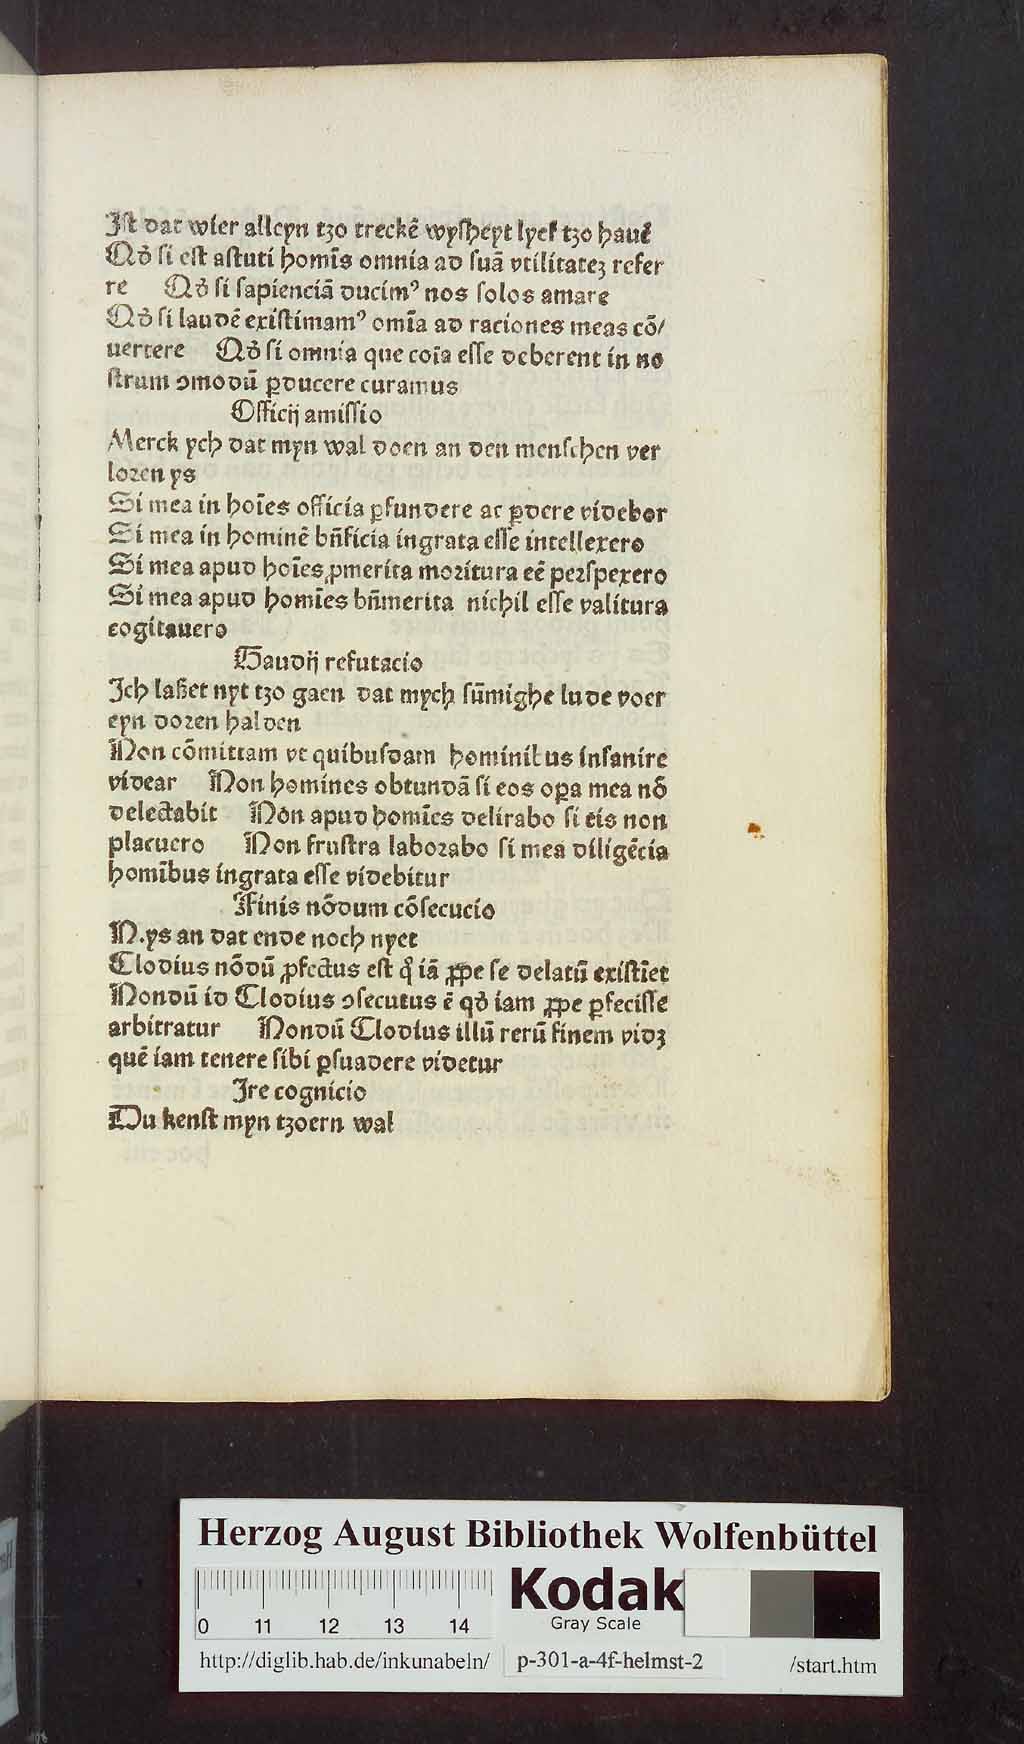 Jst dat wier alleyn tzo treckē wysheyt lyef tzo hauē
Qđ si est astuti homīs omnia ad suā vtilitatez refer
re Qđ si sapienciā ducimꝰ nos solos amare
Qđ si laudē existimamꝰ omīa ad raciones meas cō/
uertere Qđ si omnia que coīa esse deberent in no
strum ↄmodū ꝑducere curamus
Officij amissio
Merck ych dat myn wal doen an den menschen ver
loren ys
Si mea in hoīes officia ꝑfundere ac ꝑdere videbor
Si mea in hominē bn̄ficia ingrata esse intellexero
Si mea apud hoīes ꝓmerita moritura eē perspexero
Si mea apud homīes bn̄merita nichil esse valitura
cogitauero
Gaudij refutacio
Jch laßet nyt tzo gaen dat mych sūmighe lude voer
eyn doren halden
Non cōmittam vt quibusdam hominibus insanire
videar Non homines obtundā si eos oꝑa mea nō
delectabit Non apud homīes delirabo si eis non
placuero Non frustra laborabo si mea diligēcia
homībus ingrata esse videbitur
Finis nōdum cōsecucio
N.ys an dat ende noch nyet
Clodius nōdū ꝓfectus est qͦ iā ꝓpe se delatū existīet
Nondū id Clodius ↄsecutus ē qđ iam ꝓpe ꝑfecisse
arbitratur Nondū Clodius illū rerū finem vidꝫ
quē iam tenere sibi ꝑsuadere videtur
Jre cognicio
Du kenst myn tzoern wal
Herzog August Bibliothek Wolfenbüttel
Kodak
Gray Scale
0 11 12 13 14
http://diglib.hab.de/inkunabeln/ p-301-a-4f-helmst-2 /start.htm